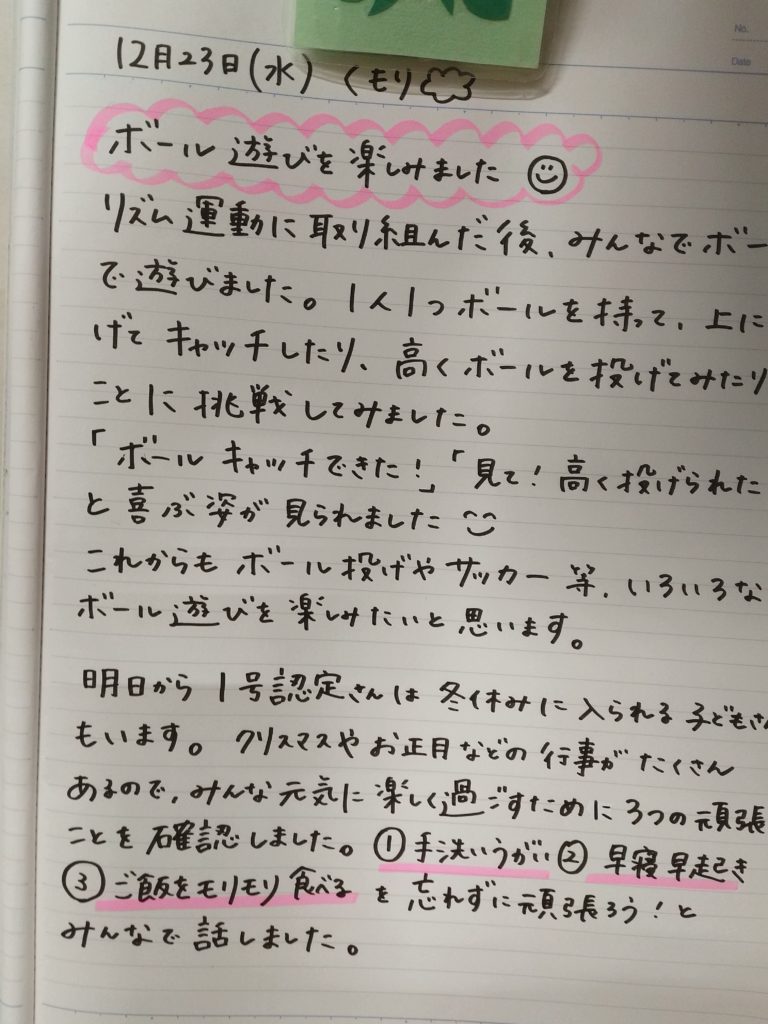 No.
Date
12月23日(水) くもり
ボール遊びを楽しみました
リズム運動に取り組んだ後、みんなでボー
で遊びました。1人1つボールを持って、上に
げてキャッチしたり、高くボールを投げてみたり
ことに挑戦してみました。
「ボールキャッチできた!」「見て!高く投げられた
と喜ぶ姿が見られました
これからもボール投げやサッカー等、いろいろな
ボール遊びを楽しみたいと思います。
明日から1号認定さんは冬休みに入られる子どもさ
もいます。クリスマスやお正月などの行事がたくさん
あるので、みんな元気に楽しく過ごすために3つの頑張
ことを確認しました。①手洗いうがい②早寝早起き
③ご飯をモリモリ食べるを忘れずに頑張ろう!と
みんなで話しました。